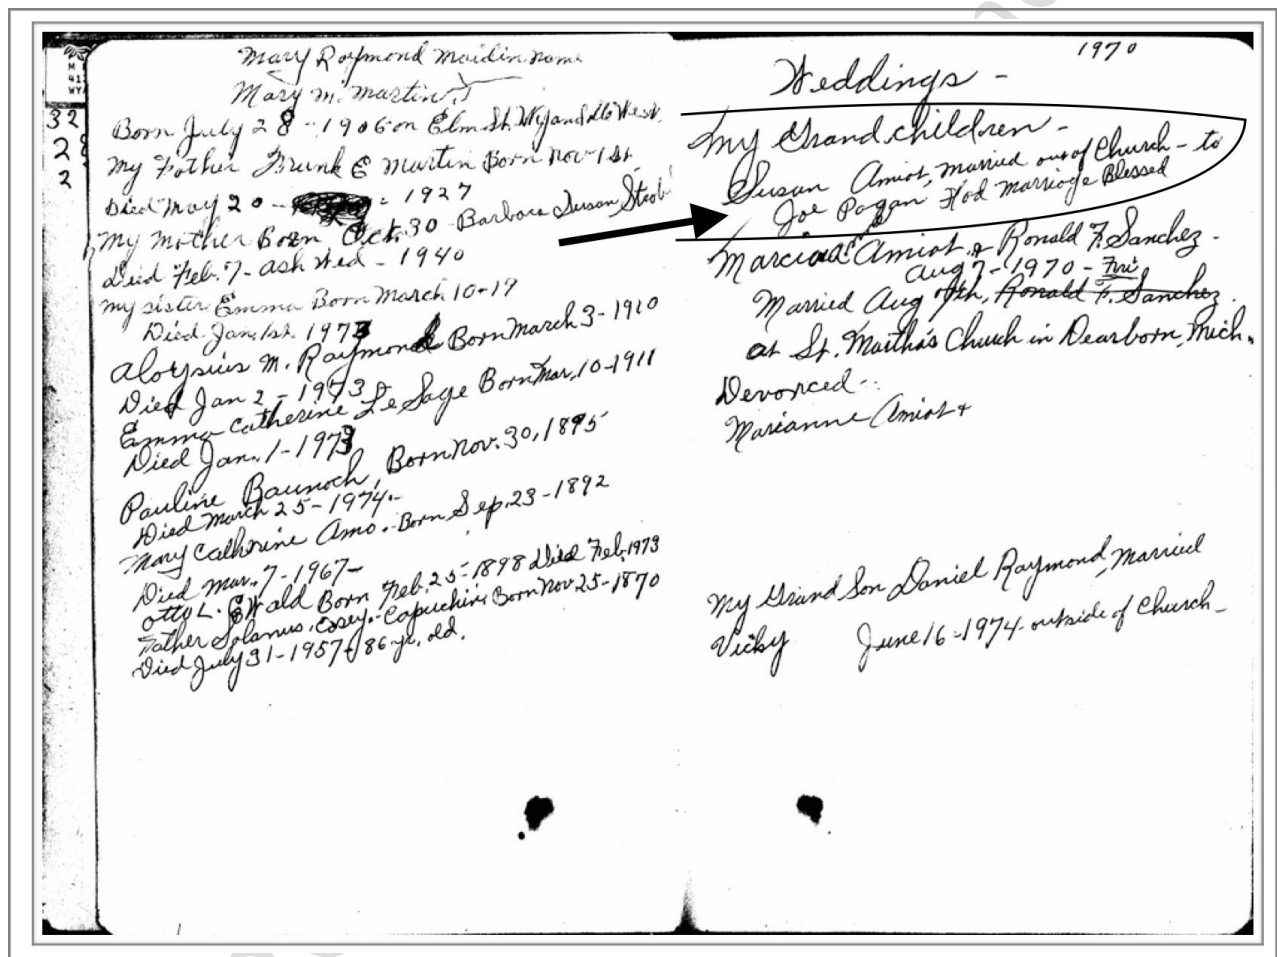 Mary Raymond Maidin name
Mary M. Martin
Born July 28 - 1906 on Elm St. Wyandotte West.
My Father Frank E Martin Born Nov 1st
Died May 20 - 1927
My Mother Born Oct. 30 - Barbara Susan Strob
Died Feb. 7 - Ash Wed - 1940
my sister Emma Born March 10-19
Died Jan. 1st. 1973
Aloysius M. Raymond Born March 3-1910
Died Jan 2 - 1973
Emma Catherine LeSage Born Mar. 10-1911
Died Jan. 1-1973
Pauline Baunoch, Born Nov. 30, 1895
Died March 25-1974.-
Mary Catherine Amo. - Born Sep. 23-1892
Died Mar. 7-1967-
Otto L. Ewald Born Feb. 25-1898 Died Feb. 1973
Father Solanus. Casey.- Capuchin. Born Nov 25-1870
Died July 31-1957-86 yr. old.
32
2
2
1970
Weddings -
My Grand children -
Susan Amiot, married out of Church - to
Joe Pagan Had Marriage Blessed
Marcia Amiot & Ronald F. Sanchez -
Aug 7-1970 - Fri
Married Aug 7th, Ronald F. Sanchez
at St. Martha's Church in Dearborn, Mich.
Devorced -
Marianne Amiot +
My Grand Son Daniel Raymond, Married
Vicky June 16-1974 - outside of Church -